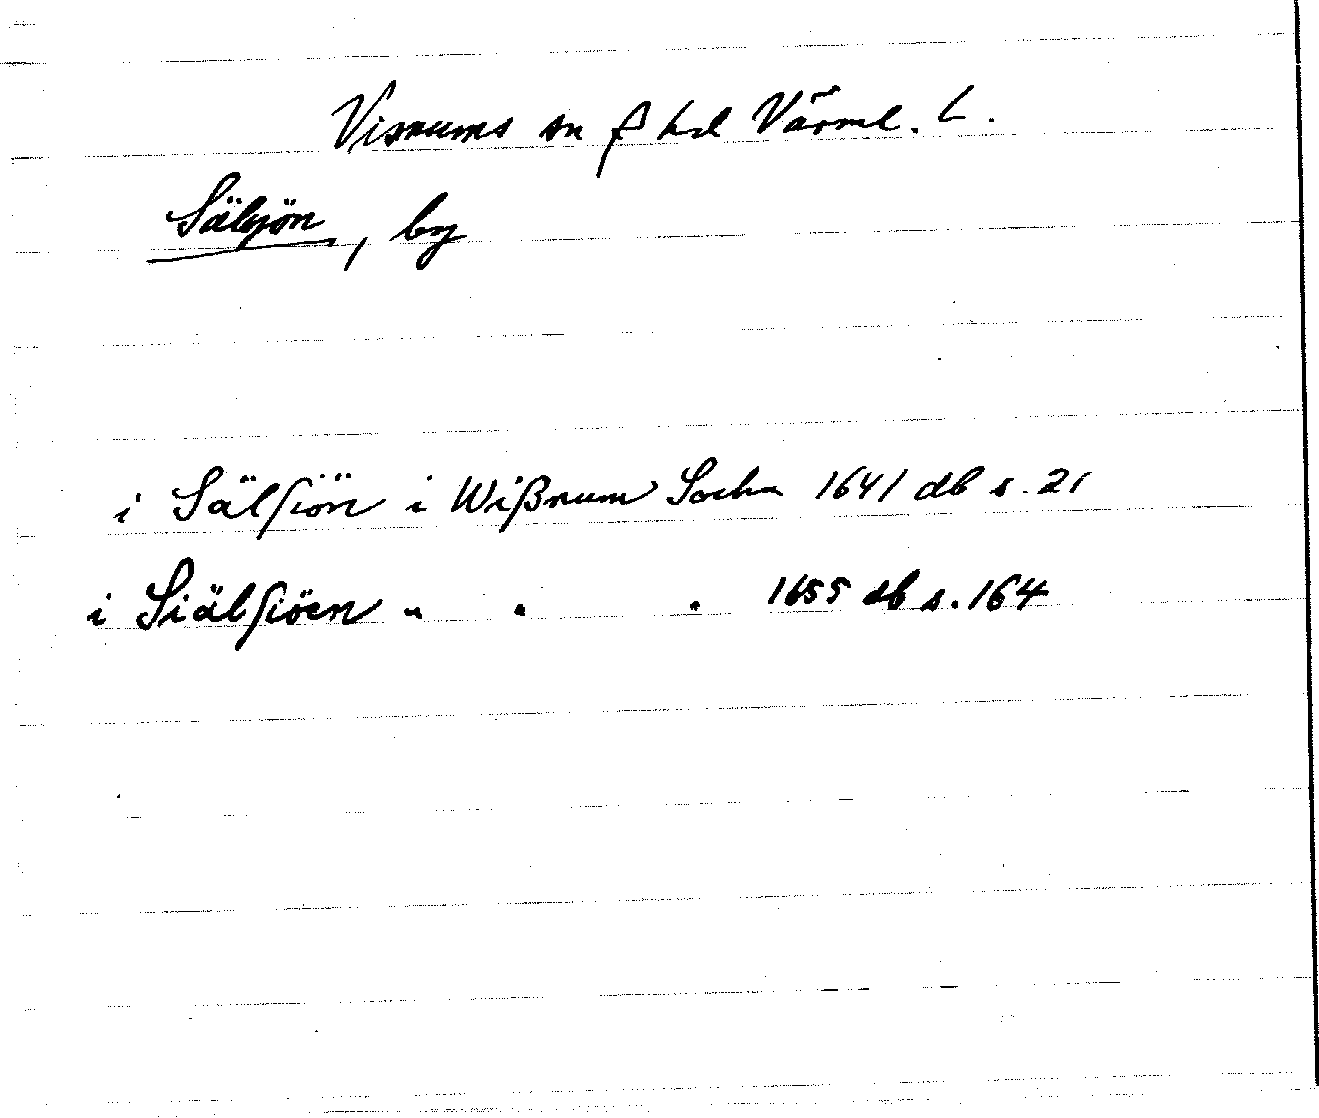 Visnums sn f hd Värml. L.
Säljön, by
i Sälsiön i Wißnum Sockn 1641 db s. 21
i Siälsiöen " " " 1655 db s. 164